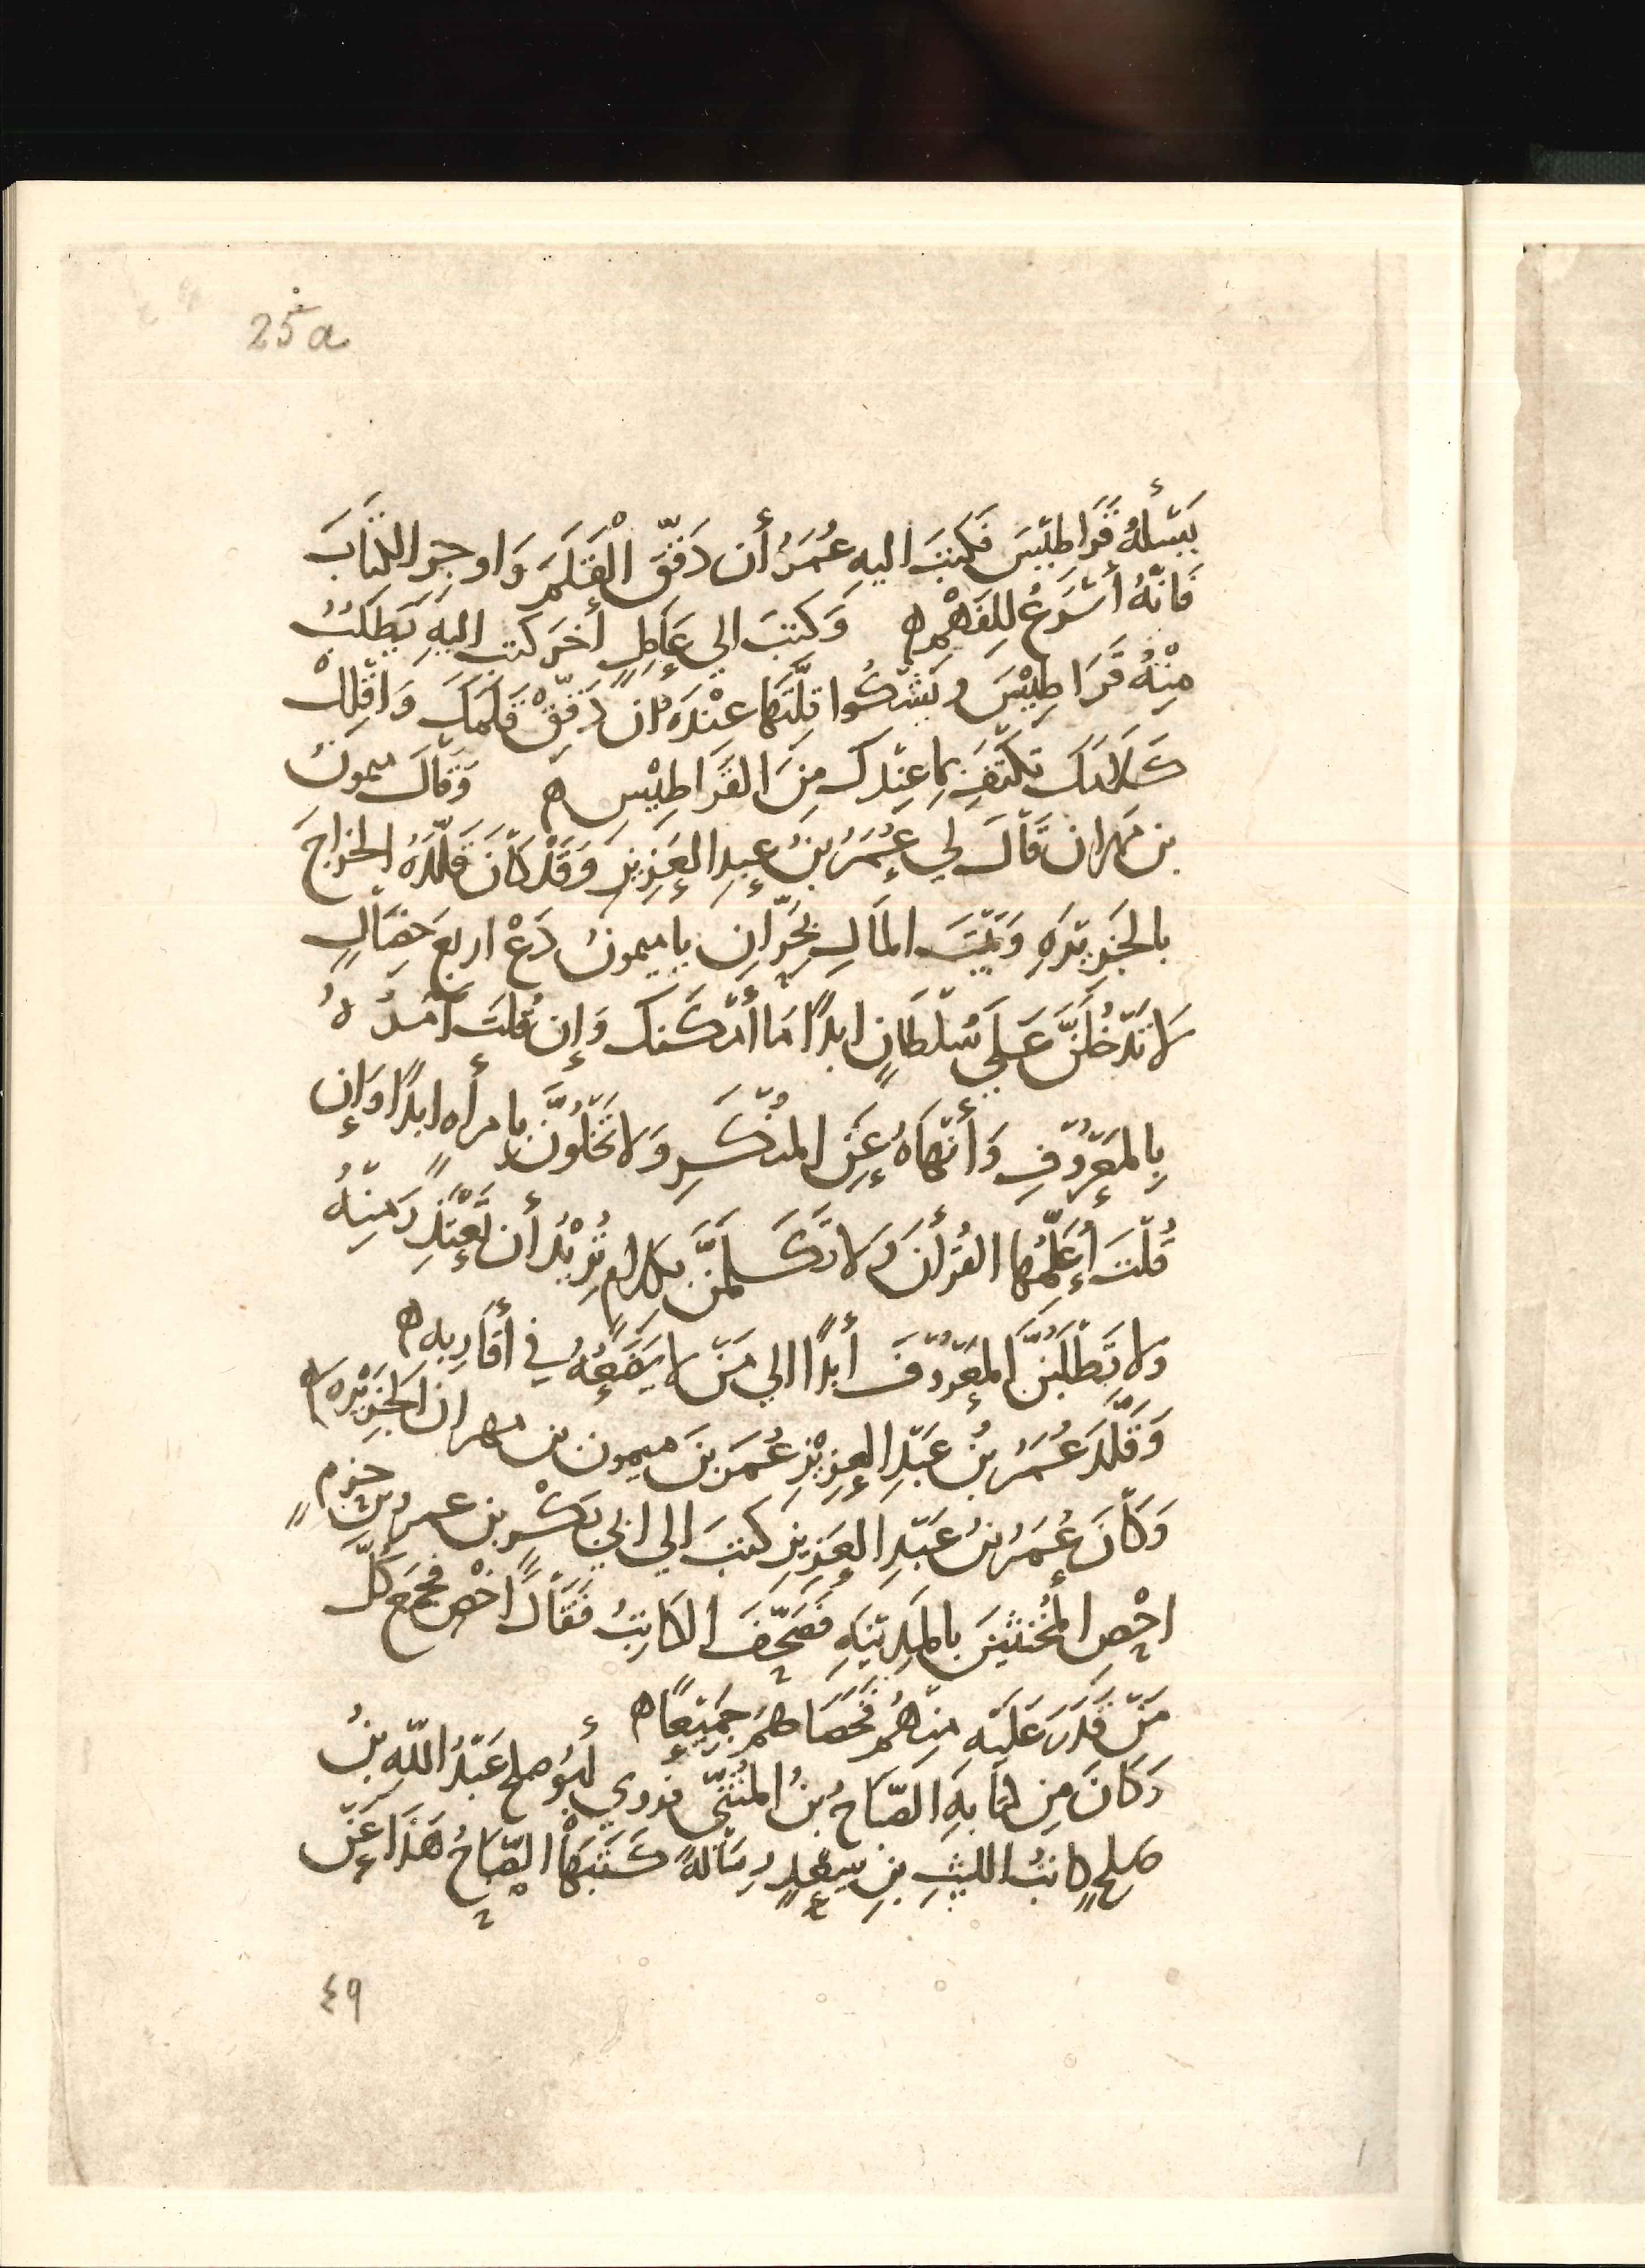 25a
يَسْأَلُهُ قَرَاطِيْسَ فَكَتَبَ اليهِ عُمَرُ أَن دَقِّقَ الْقَلَمَ وَاوجِرِ الكِتَابَ
فَانّهُ أَسْرَعُ لِلفَهْمِ ه وَكَتَبَ الي عَامِلٍ أخَرَ كتب اليهِ يَطلُبُ
مِنْهُ قَرَاطِيْسَ ويَشْكُوا قِلَّتَهَا عِنْدَهُ ان دَقِّقْ قَلَمَكَ وَاقْلِلْ
كَلَامَكَ تَكْتَفِ بِمَا عِندَكَ مِنَ القَرَاطِيْسِ ه وَقَالَ ميمونُ
بن مهران قَالَ لي عُمَرُ بنُ عبدِ العَزِيزِ وَقَدْ كَانَ قَلَّدَهُ الخراجَ
بالجَزِيْرَهِ وَبَيْتَ المَالِ بِحَرَّانَ يا ميمونُ دَعْ اربعَ خِصَالٍ
لَا تَدْخُلَنَّ عَلَي سُلْطَانٍ ابدًا مَا أَمْكَنَكَ وَإِن قُلتَ آمُرُهُ
بِالمَعْرُوْفِ وَأَنْهَاهُ عَنِ المُنْكَرِ وَلا تَخْلُوَنَّ بِامراهٍ ابدًا وَإِن
قُلْتَ أُعَلِّمُهَا القُرأنَ ولَا تَتَكَلَّمَنَّ بكلامٍ تُرِيْدُ أن تَعْتَذِرَ مِنْهُ
ولا تَطْلُبَنَّ المَعْرُوْفَ أبدًا الي مَنْ لا يَضَعُهُ في أَقَارِبِه ه
وَقَلَّدَ عُمَرُ بنُ عَبْدِ العَزِيْزِ عُمَرَ بنَ ميمون بن مهران الجَزِيْرَه ه
وَكَانَ عُمَرُ بنُ عَبْدِ العَزِيزِ كتبَ الي ابي بَكْرِ بن عمرو بن حزمٍ
احْصِ المُخَنثِينَ بالمَدِيْنَهِ فَصَحَّفَ الكَاتِبُ فَقَالَ اخْصِ فجمع كلّ
مَنْ قَدَرَ عَلَيْهِ مِنْهُمْ فَخَصَاهُمْ جَمِيْعًا ه
وَكَانَ مِن كتّابهِ الصَّبَاحُ بنُ المُثَنَّي فرَوي أبُو صلح عَبْدُ اللّهِ بنُ
صلحٍ كاتبُ الليثِ بنِ سعدٍ رسَالهً كَتَبَهَا الصَّبَاحُ هَذَا عَنْ
٤٩